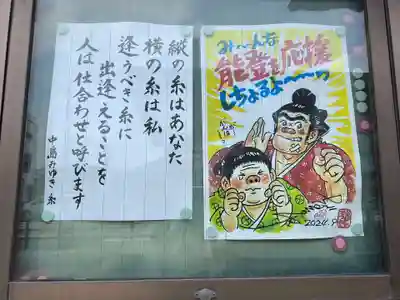 縦の糸はあなた
横の糸は私
逢うべき糸に
出逢えることを
人は仕合わせと呼びます
中島みゆき 糸
み〜んな
能登を応援
しちょるよ〜〜っ
2024.9